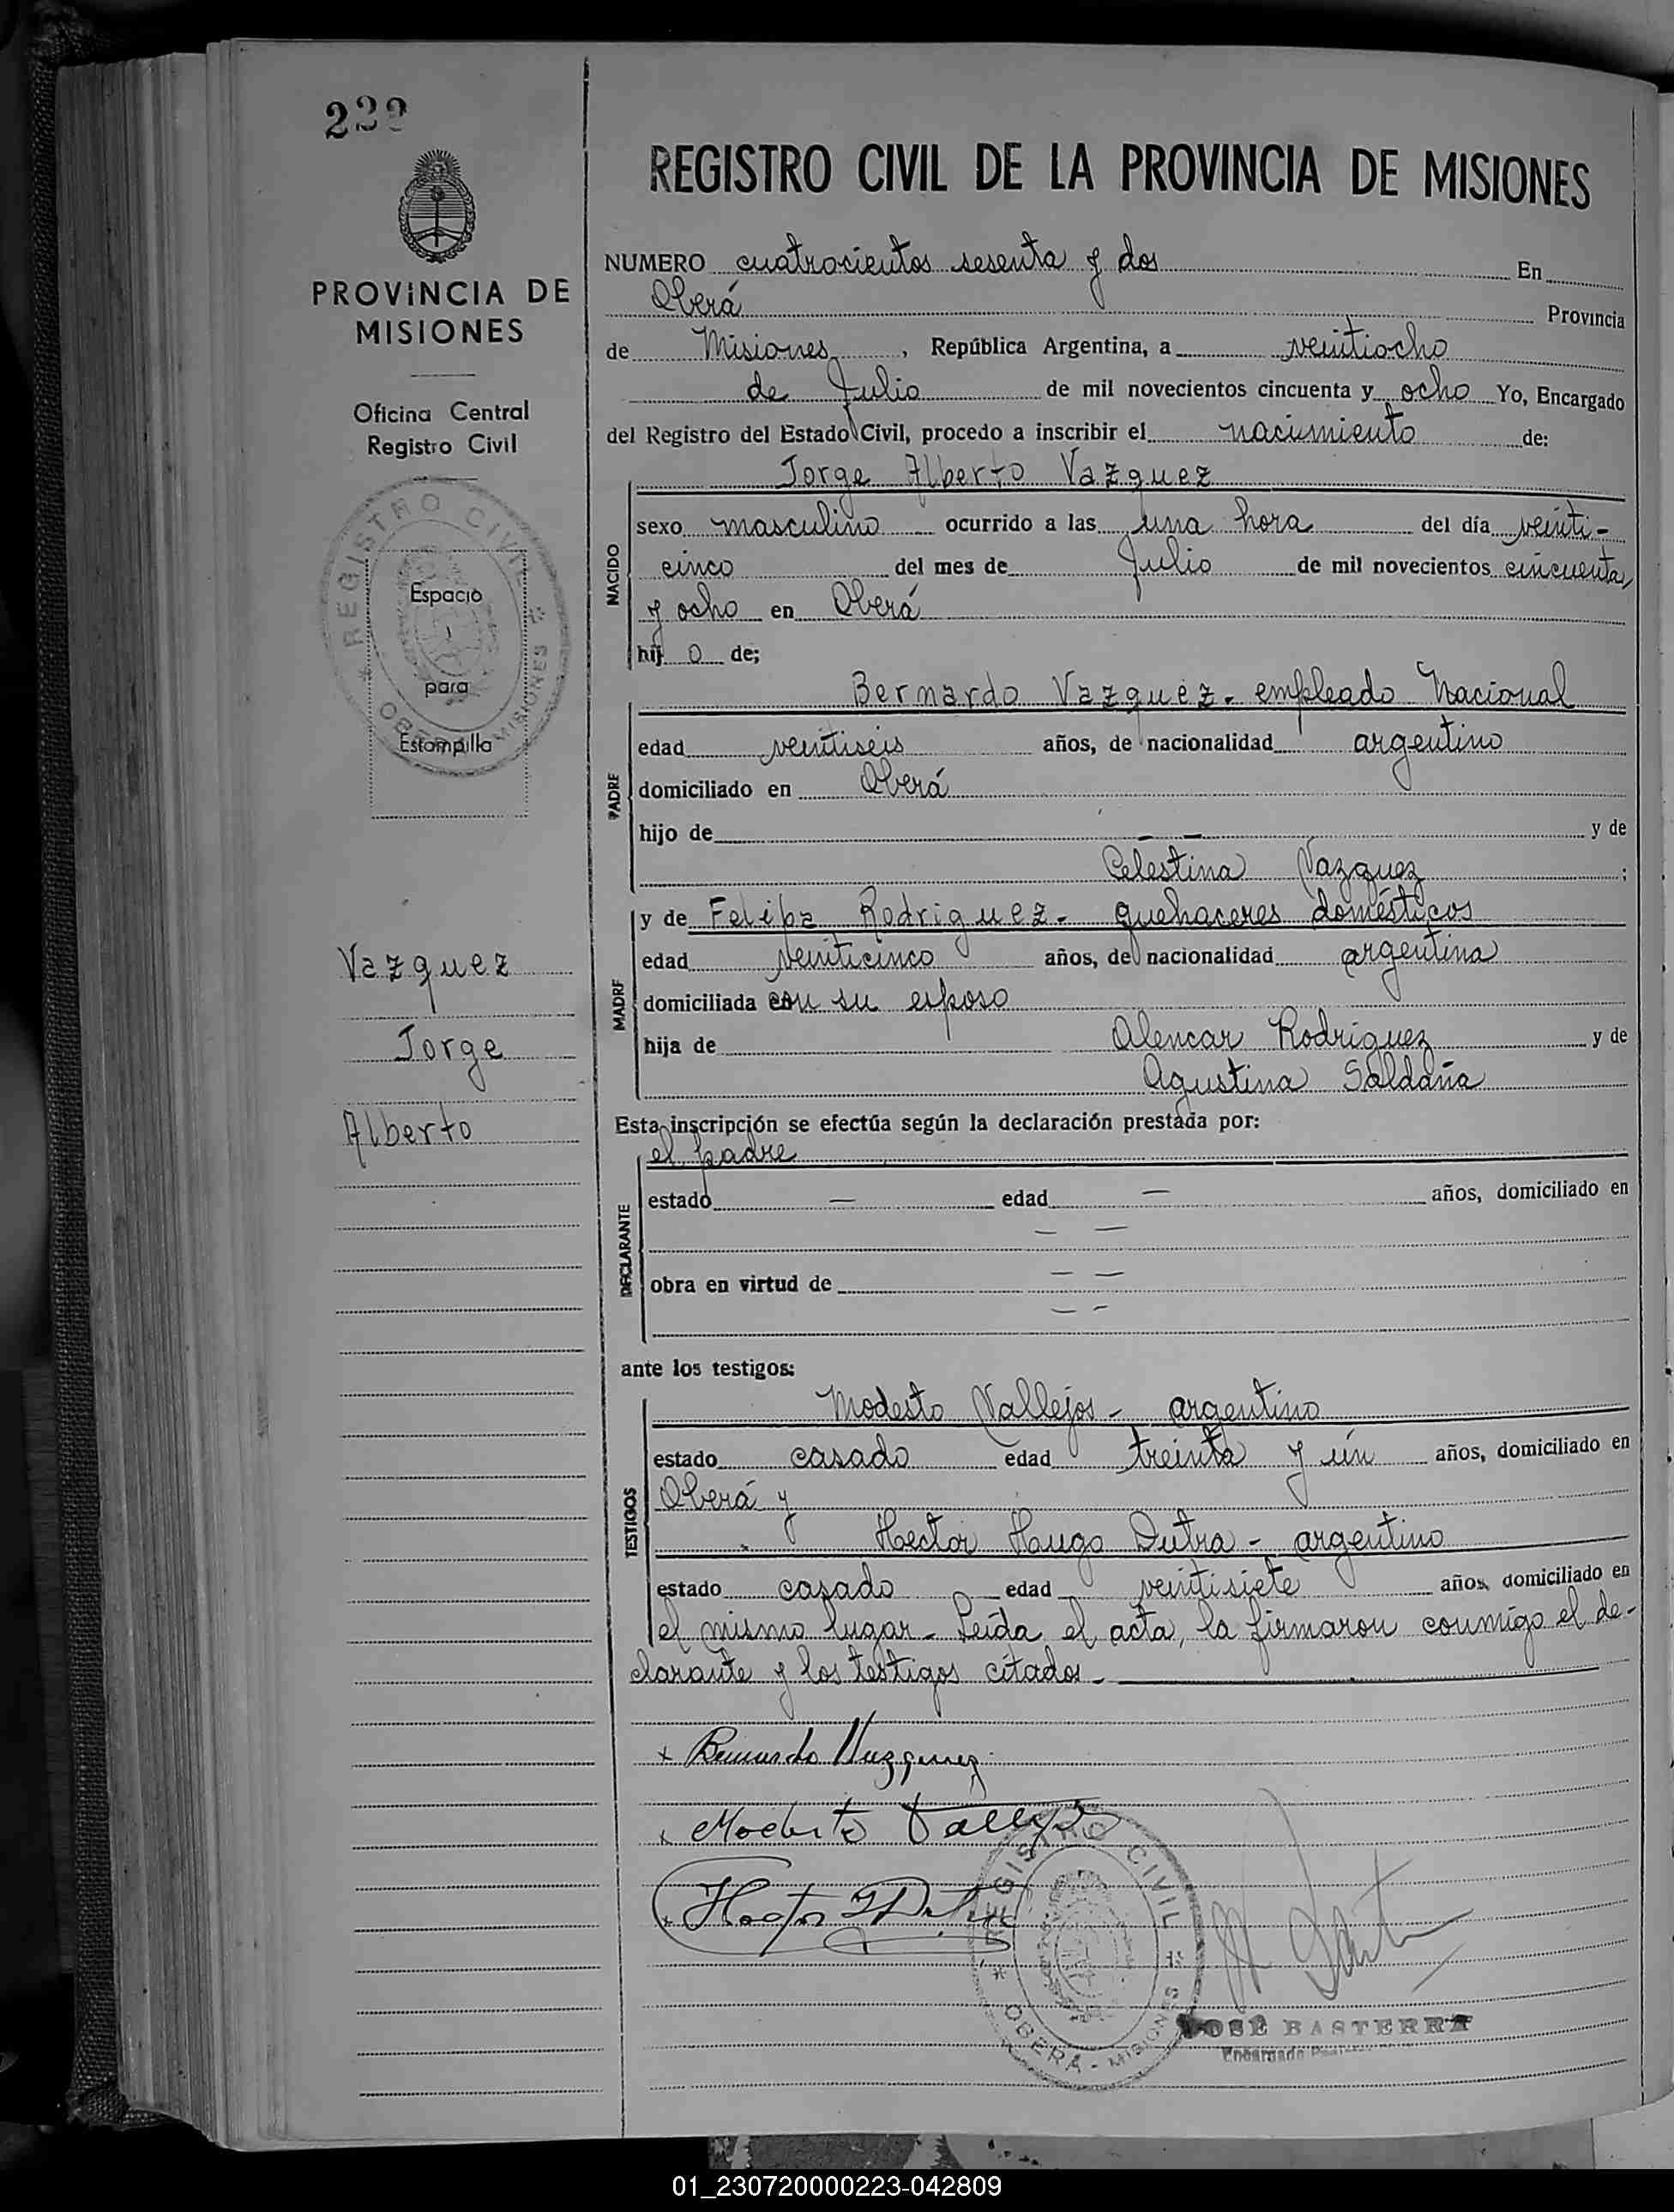 PROVINCIA DE
MISIONES
Oficina Central
Registro Civil
REGISTRO CIVIL
OBERA - MISIONES
Espacio
para
Estampilla
Vazquez
Jorge
Alberto
REGISTRO CIVIL DE LA PROVINCIA DE MISIONES
NUMERO cuatrocientos sesenta y dos En
Oberá Provincia
de Misiones, República Argentina, a veintiocho
de Julio de mil novecientos cincuenta y ocho Yo, Encargado
del Registro del Estado Civil, procedo a inscribir el nacimiento de:
Jorge Alberto Vazquez
NACIDO
sexo masculino ocurrido a las una hora del día veinti-
cinco del mes de Julio de mil novecientos cincuenta
y ocho en Oberá
hij o de;
Bernardo Vazquez - empleado Nacional
PADRE
edad veintiseis años, de nacionalidad argentino
domiciliado en Oberá
hijo de — — y de
Celestina Vazquez ;
y de Felipa Rodriguez - quehaceres domésticos
MADRE
edad veinticinco años, de nacionalidad argentina
domiciliada con su esposo
hija de Alencar Rodriguez y de
Agustina Saldaña
Esta inscripción se efectúa según la declaración prestada por:
el padre
DECLARANTE
estado — edad — años, domiciliado en
— —
obra en virtud de — —
— —
ante los testigos:
Modesto Vallejos - argentino
TESTIGOS
estado casado edad treinta y ún años, domiciliado en
Oberá y
Hector Hugo Dutra - argentino
estado casado edad veintisiete años, domiciliado en
el mismo lugar - Leída el acta, la firmaron conmigo el de-
clarante y los testigos citados -
x Bernardo Vazquez
x Modesto Vallejos
x Hector H Dutra
REGISTRO CIVIL
OBERÁ - MISIONES
JOSÉ BASTERRA
Encargado
01_230720000223-042809